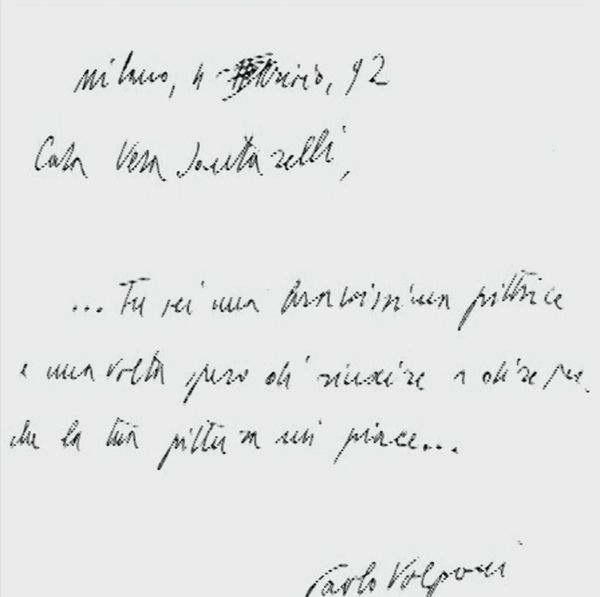 Milano, 4 92
Cara Vera Santarelli,
... Tu sei una bravissima pittrice
e una volta spero di riuscire a dire per
che la tua pittura mi piace...
Paolo Volponi